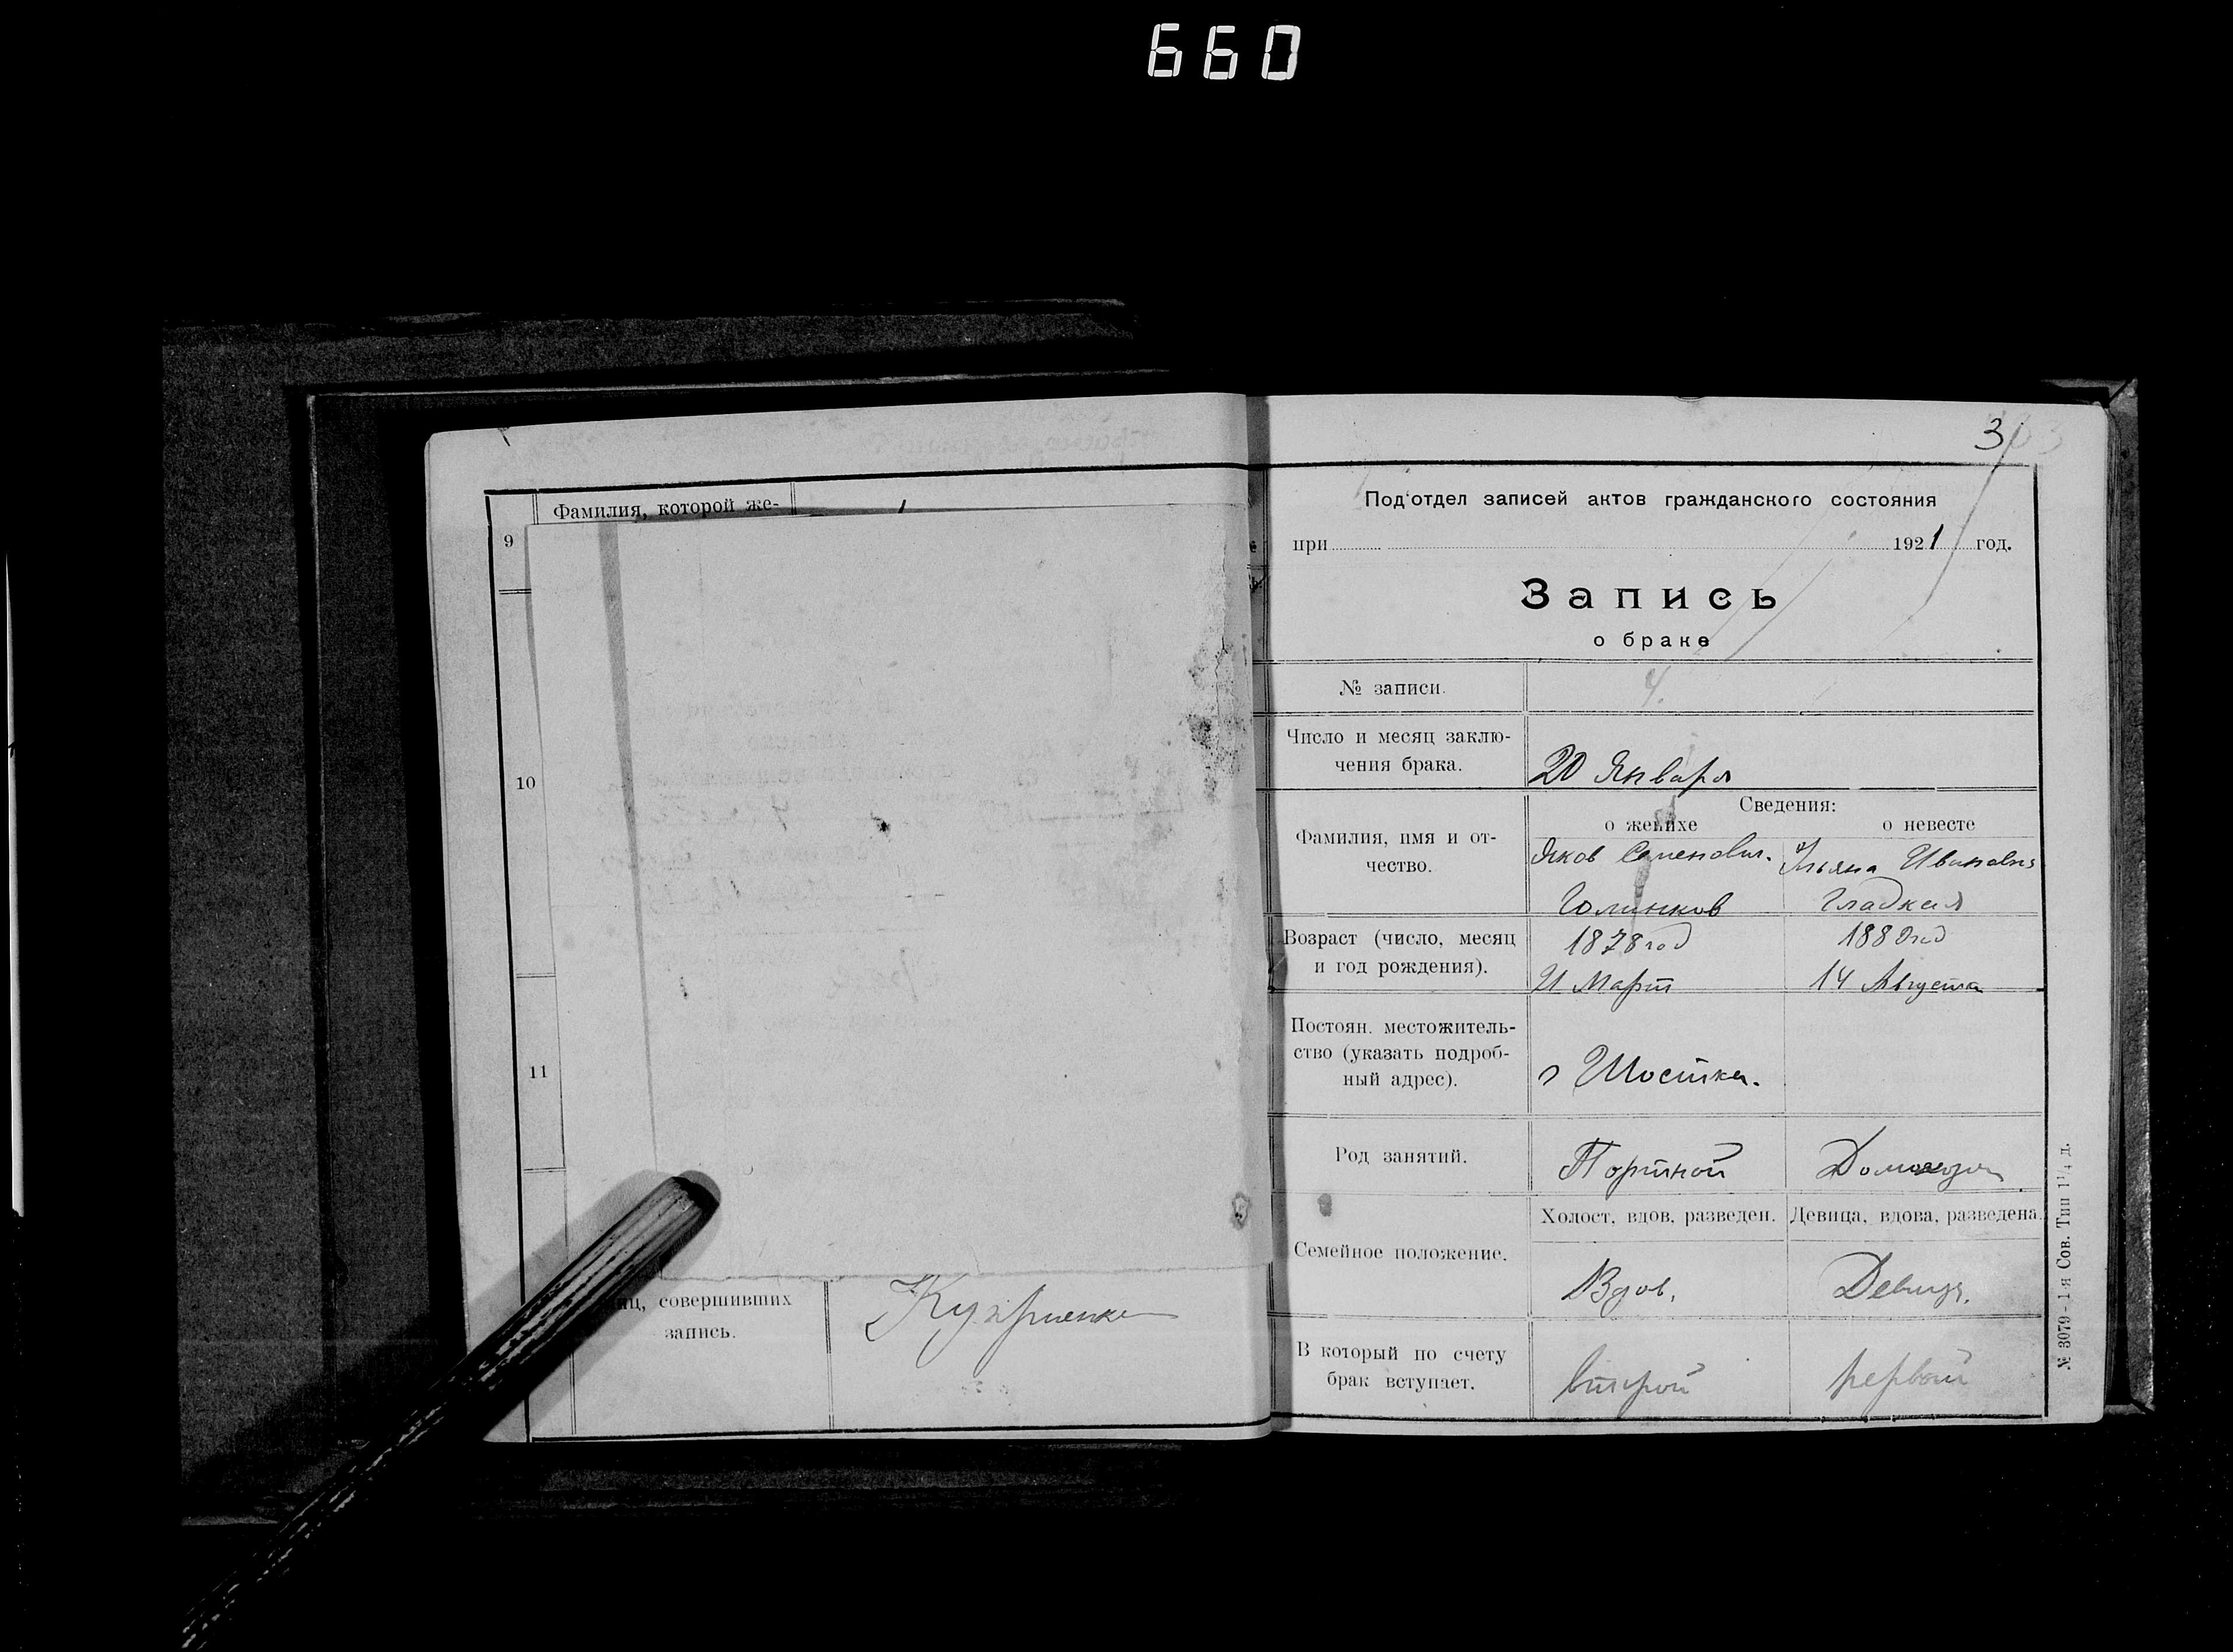 660
9
Фамилия, которой же-
10
11
совершивших
запись.
3
Под'отдел записей актов гражданского состояния
при 1921 год.
Запись
о браке
№ записи. 4.
Число и месяц заклю-
чения брака.
20 Января
Сведения:
о женихе о невесте
Фамилия, имя и от-
чество.
Яков Семенович. Ульяна Ивановна
Голиков Гладкая
Возраст (число, месяц
и год рождения).
1878 год 1880 год
21 Март 14 Августа
Постоян. местожитель-
ство (указать подроб-
ный адрес).
г Шостка.
Род занятий. Портной
Семейное положение.
Холост, вдов, разведен. Девица, вдова, разведена.
Вдов. Девица.
В который по счету
брак вступает.
второй первой
№ 3079 - 1-я Сов. Тип 1¼ д.